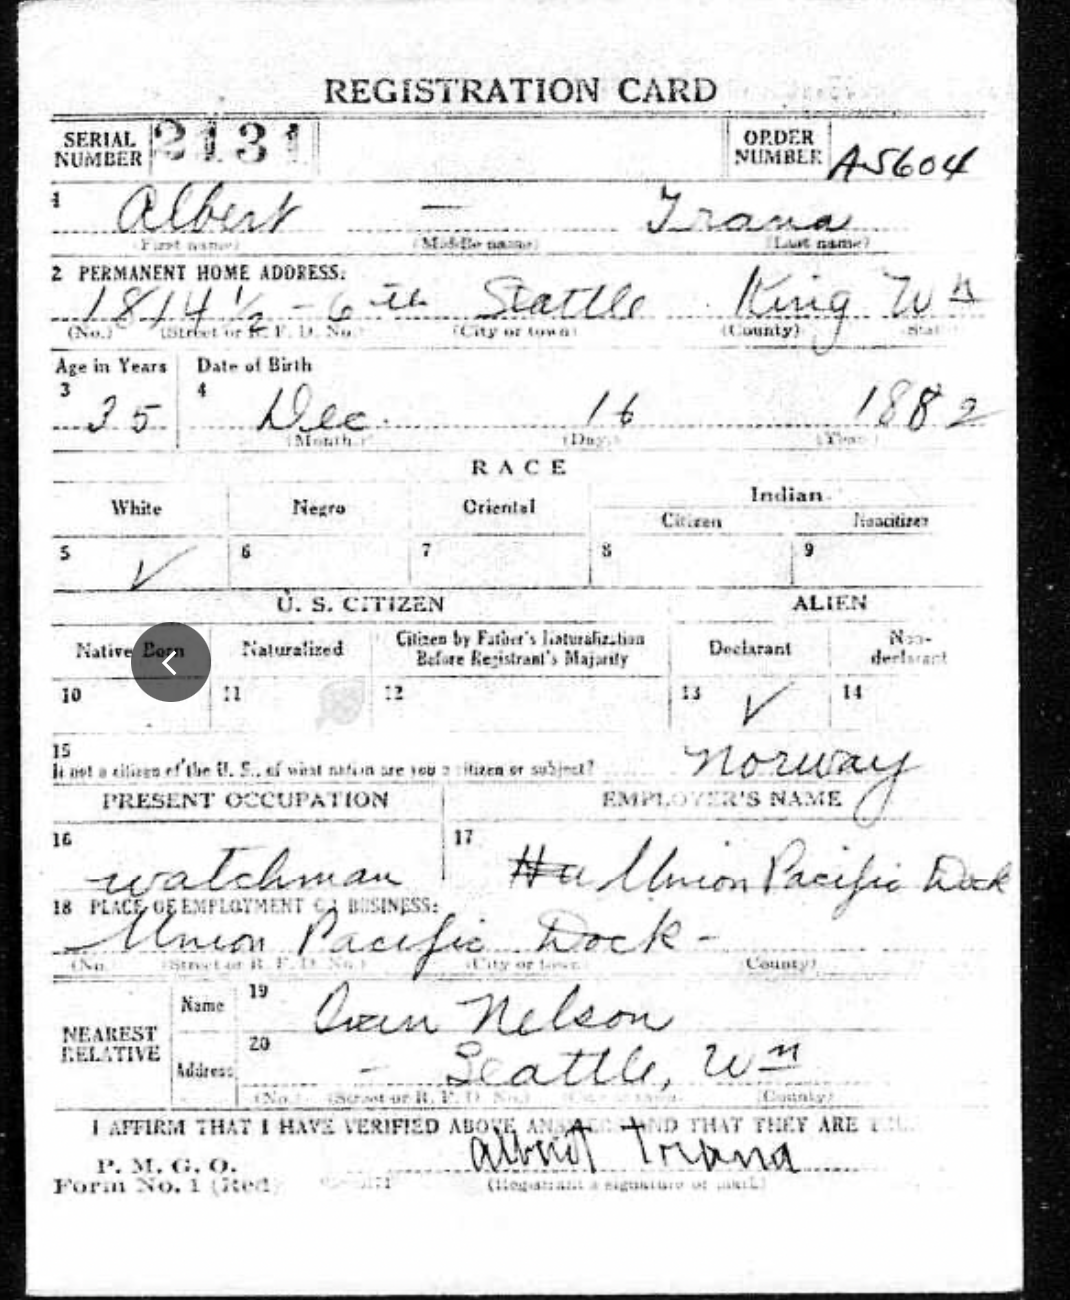 REGISTRATION CARD
SERIAL NUMBER 2131 ORDER NUMBER A5604
1 Albert — Trana
(First name) (Middle name) (Last name)
2 PERMANENT HOME ADDRESS:
1814 ½ - 6th Seattle King Wn
(No.) (Street or R. F. D. No.) (City or town) (County) (State)
Age in Years Date of Birth
3 35 4 Dec. 16 1882
(Month.) (Day.) (Year.)
RACE
White Negro Oriental Indian
Citizen Noncitizen
5 ✓ 6 7 8 9
U. S. CITIZEN ALIEN
Native Born Naturalized Citizen by Father's Naturalization Before Registrant's Majority Declarant Non-declarant
10 11 12 13 ✓ 14
15
If not a citizen of the U. S., of what nation are you a citizen or subject? Norway
PRESENT OCCUPATION EMPLOYER'S NAME
16 watchman 17 Union Pacific Dock
18 PLACE OF EMPLOYMENT OR BUSINESS:
Union Pacific Dock -
(No.) (Street or R. F. D. No.) (City or town) (County)
NEAREST RELATIVE
Name 19 Nelson
Address 20 - Seattle, Wn
(No.) (Street or R. F. D. No.) (City or town) (County)
I AFFIRM THAT I HAVE VERIFIED ABOVE ANSWERS AND THAT THEY ARE TRUE.
P. M. G. O.
Form No. 1 (Red) Albert Trana
(Registrant's signature or mark)